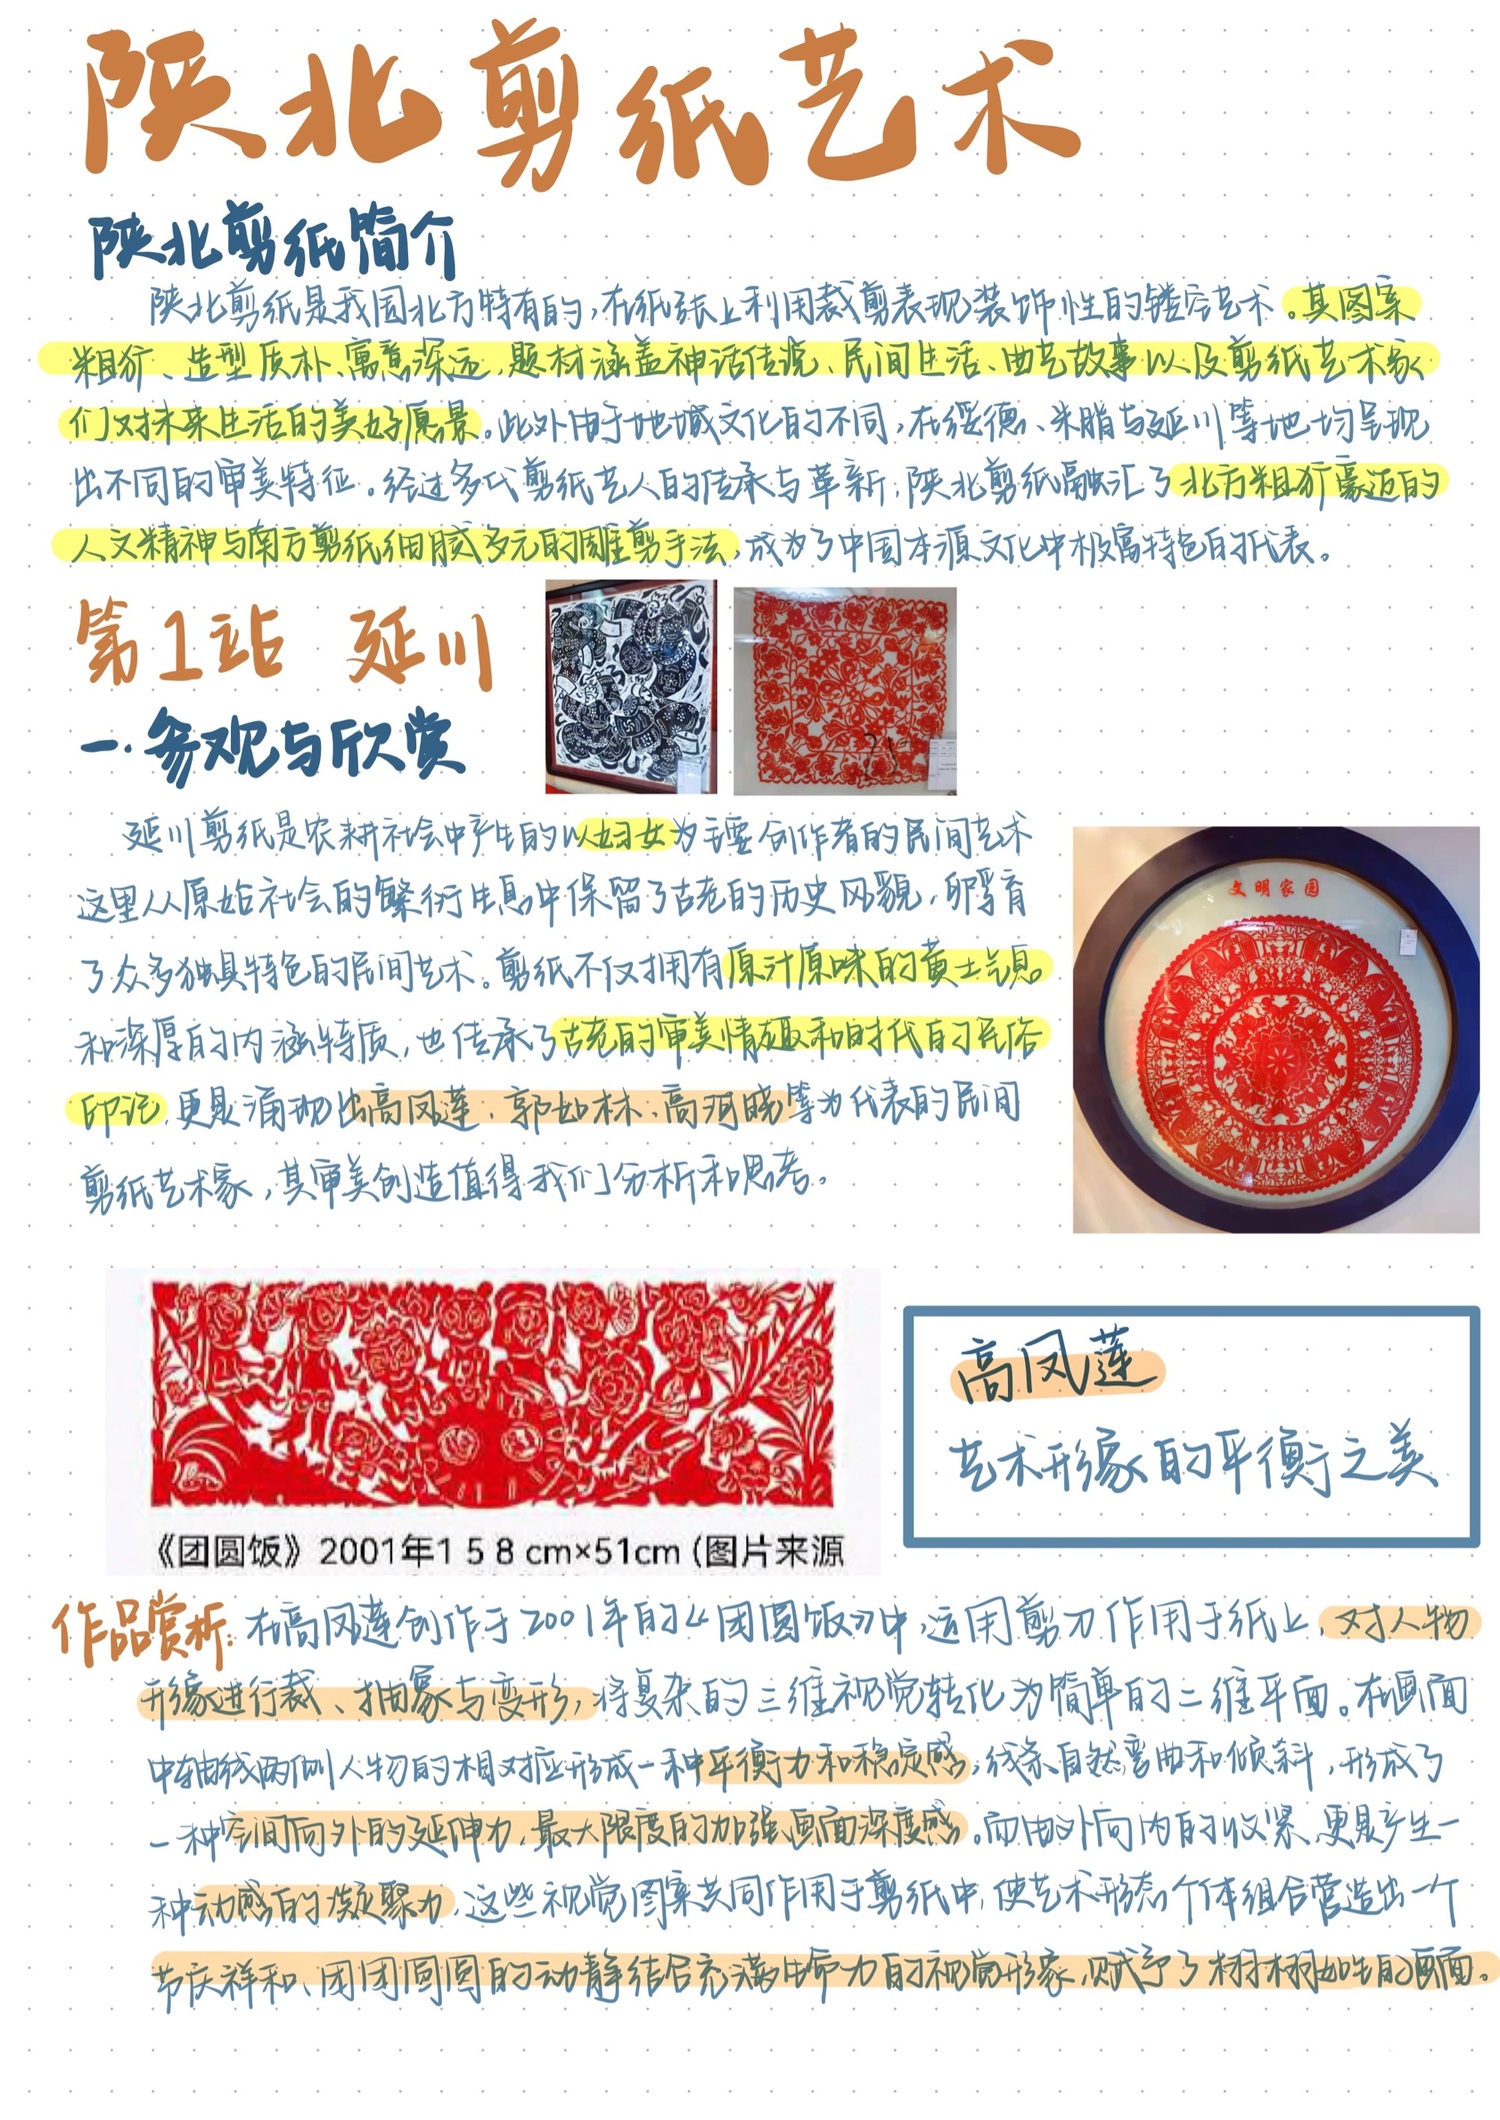 陕北剪纸艺术
陕北剪纸简介
陕北剪纸是我国北方特有的，在纸张上利用裁剪表现装饰性的镂空艺术。其图案
粗犷、造型质朴、寓意深远，题材涵盖神话传说、民间生活、曲艺故事以及剪纸艺术家
们对未来生活的美好愿景。此外由于地域文化的不同，在绥德、米脂与延川等地均呈现
出不同的审美特征。经过多代剪纸艺人的传承与革新，陕北剪纸融汇了北方粗犷豪迈的
人文精神与南方剪纸细腻多元的雕剪手法，成为了中国本源文化中极富特色的代表。
第1站 延川
一.参观与欣赏
延川剪纸是农耕社会中产生的以妇女为主要创作者的民间艺术
这里从原始社会的繁衍生息中保留了古老的历史风貌，孵育
了众多独具特色的民间艺术。剪纸不仅拥有原汁原味的黄土气息
和深厚的内涵特质，也传承了古老的审美情趣和时代的民俗
印记，更是涌现出高凤莲、郭如林、高河晓等为代表的民间
剪纸艺术家，其审美创造值得我们分析和思考。
文明家园
《团圆饭》2001年1 5 8 cm×51cm (图片来源
高凤莲
艺术形象的平衡之美
作品赏析：在高凤莲创作于2001年的《团圆饭》中，运用剪刀作用于纸上，对人物
形象进行裁、抽象与变形，将复杂的三维视觉转化为简单的二维平面。在画面
中轴线两侧人物的相对应形成一种平衡力和稳定感，线条自然弯曲和倾斜，形成了
一种空间向外的延伸力，最大限度的加强画面深度感。而由外向内的收紧，更是产生一
种动感的凝聚力，这些视觉图案共同作用于剪纸中，使艺术形态个体组合营造出一个
节庆祥和、团团圆圆的动静结合充满生命力的视觉形象，赋予了栩栩如生的画面。